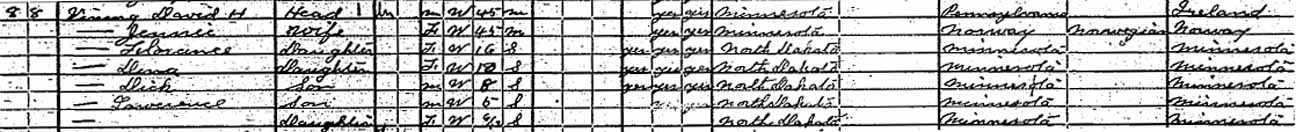 8 8 Vining David H Head 1 m W 45 m yes yes Minnesota Pennsylvania Ireland
— Jennie Wife F W 45 m yes yes Minnesota Norway Norwegian Norway
— Florance Daughter F W 16 S yes yes yes North Dakota Minnesota Minnesota
— Daughter F W 10 S yes yes yes North Dakota Minnesota Minnesota
— Dick Son m W 8 S yes yes yes North Dakota Minnesota Minnesota
— Lawerence Son m W 5 S North Dakota Minnesota Minnesota
— Daughter F W S North Dakota Minnesota Minnesota